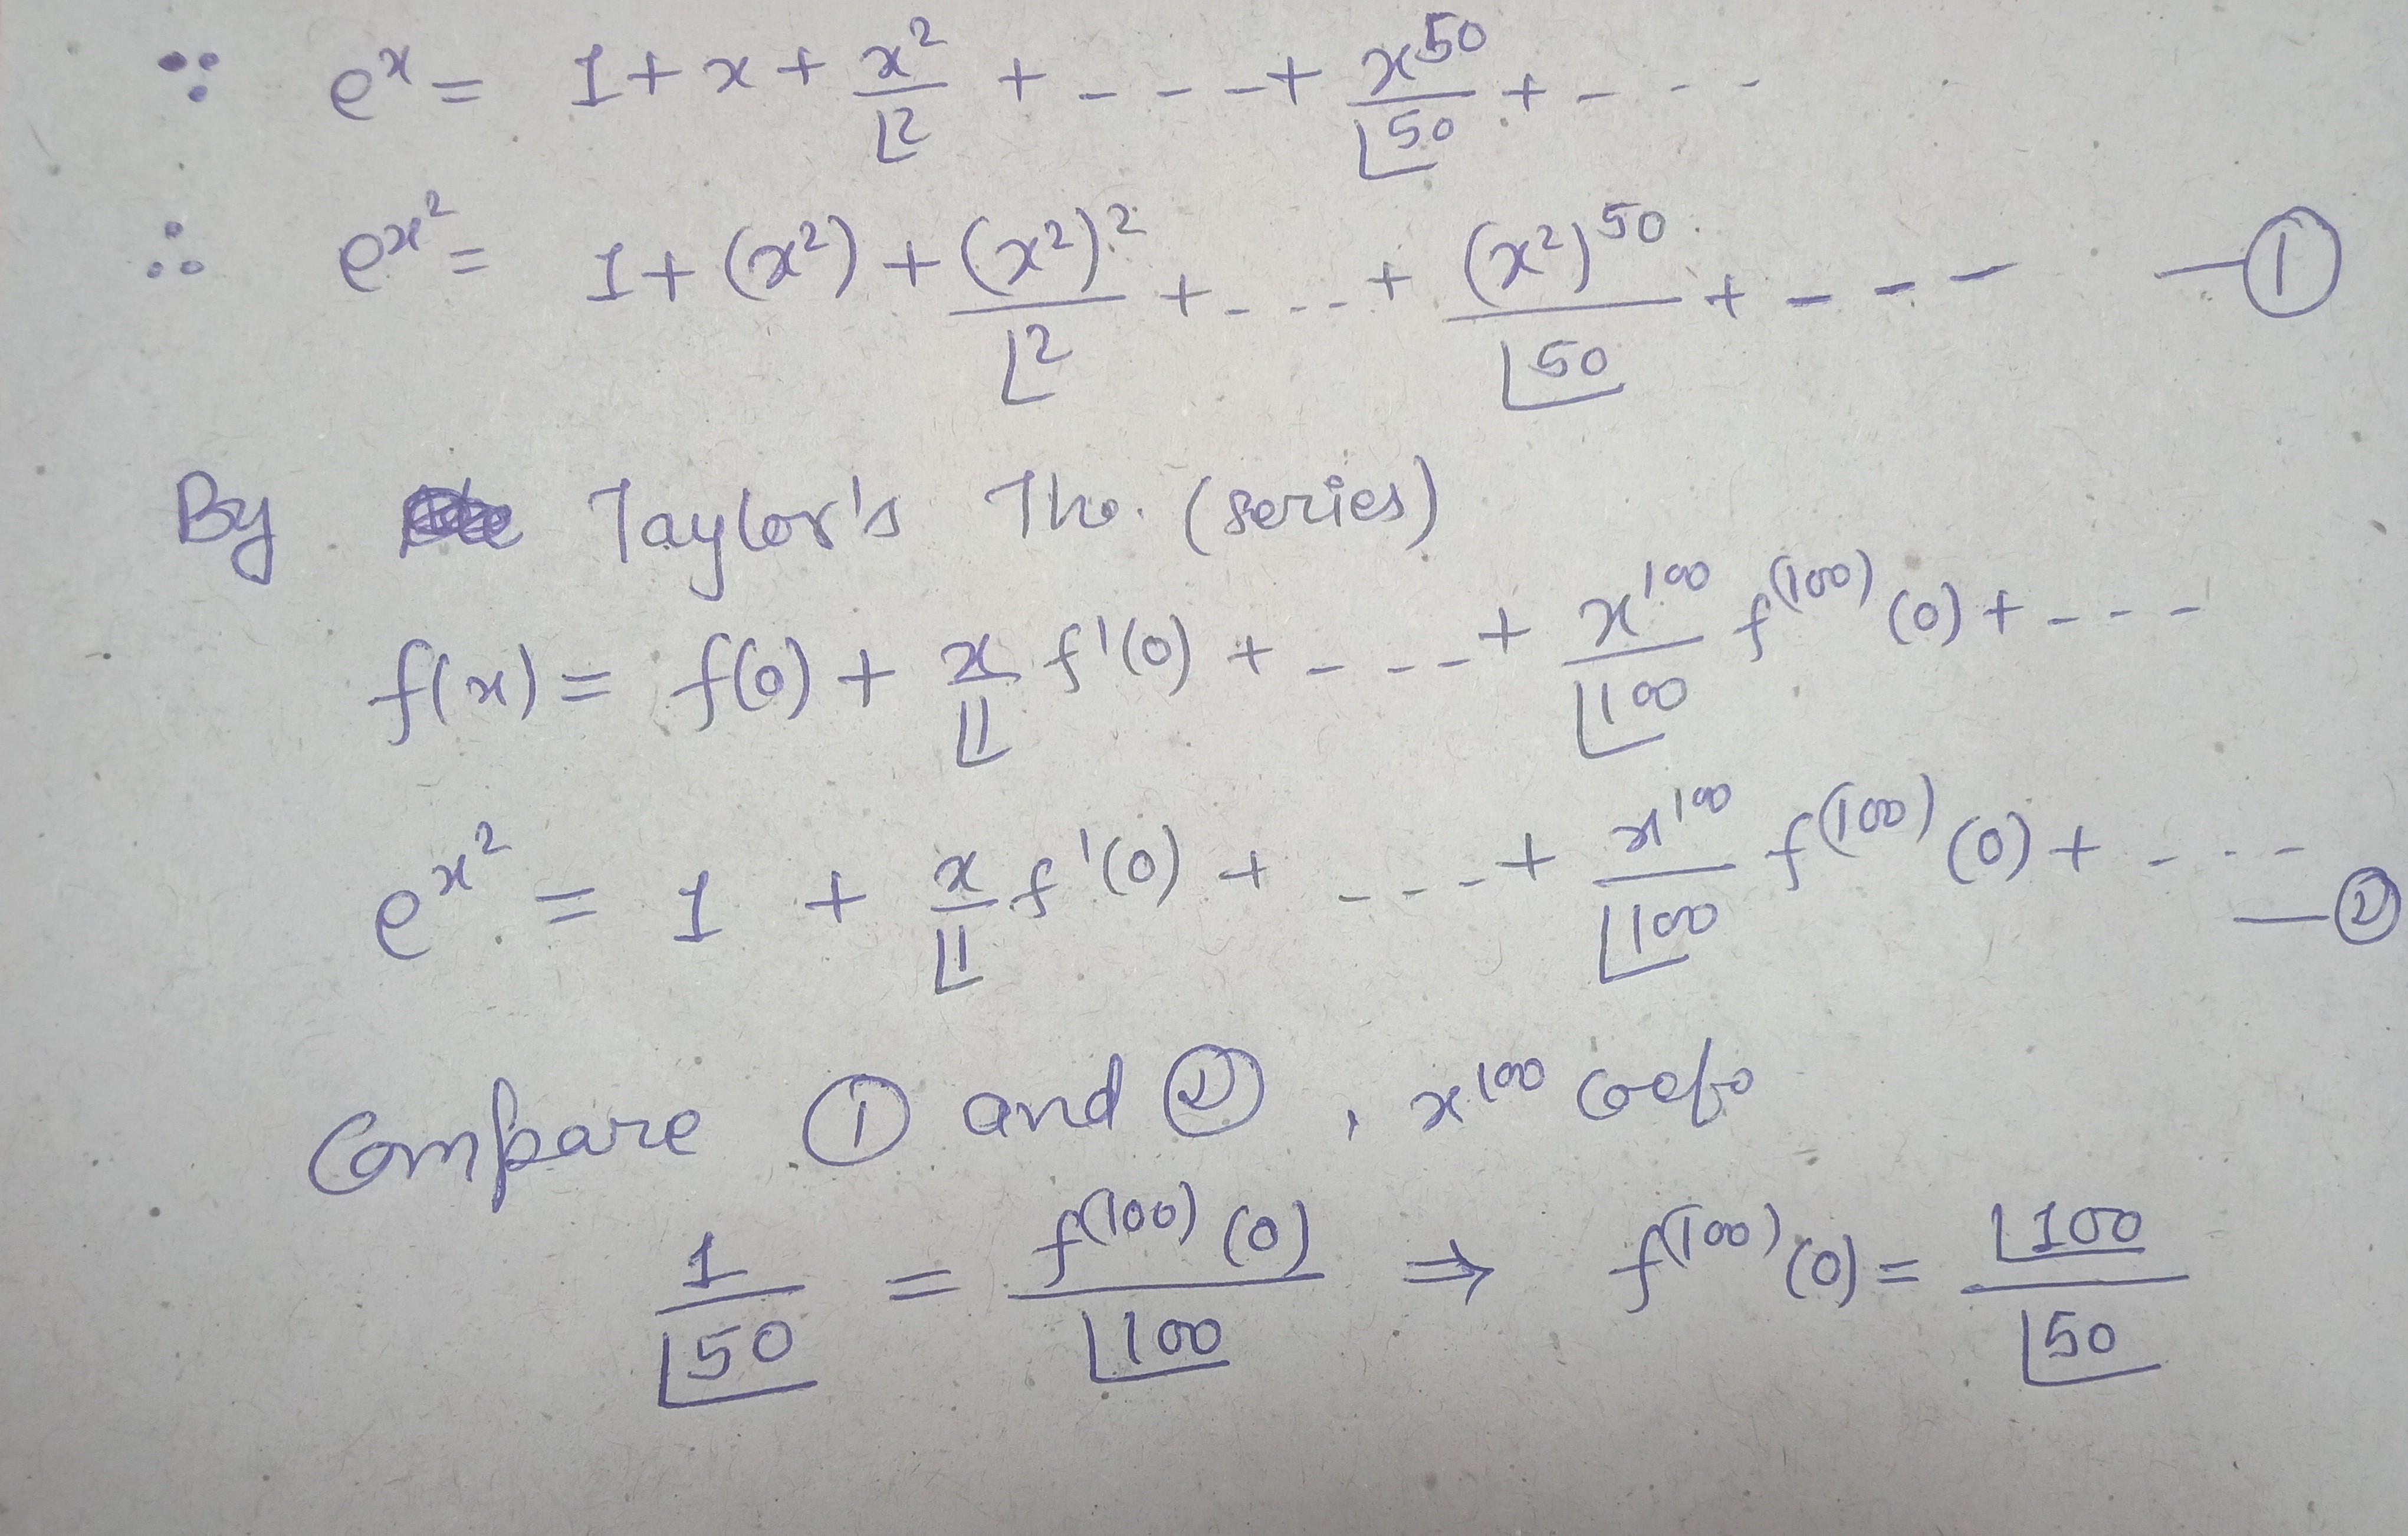 ∵ e^x = 1 + x + x^2/⌊2 + - - - + x^50/⌊50 + - - - -
∴ e^x^2 = 1 + (x^2) + (x^2)^2/⌊2 + - - - + (x^2)^50/⌊50 + - - - —①
By Taylor's Tho. (series)
f(x) = f(0) + x/⌊1 f'(0) + - - - + x^100/⌊100 f^(100) (0) + - - -
e^x^2 = 1 + x/⌊1 f'(0) + - - - + x^100/⌊100 f^(100) (0) + - - - —②
Compare ① and ② , x^100 coefo
1/⌊50 = f^(100) (0)/⌊100 ⇒ f^(100) (0) = ⌊100/⌊50